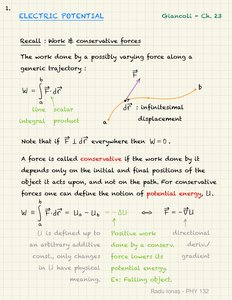 1.
ELECTRIC POTENTIAL Giancoli - Ch. 23
Recall : Work & conservative forces
The work done by a possibly varying force along a
generic trajectory :
W = ∫ₐᵇ F⃗·dr⃗
line scalar
integral product
F⃗
a
b
dr⃗ : infinitesimal
displacement
Note that if F⃗ ⊥ dr⃗ everywhere then W = 0 .
A force is called conservative if the work done by it
depends only on the initial and final positions of the
object it acts upon, and not on the path. For conservative
forces one can define the notion of potential energy, U.
W = ∫ₐᵇ F⃗·dr⃗ = Uₐ - U_b = -ΔU ⇔ F⃗ = -∇⃗U
U is defined up to
an arbitrary additive
const., only changes
in U have physical
meaning.
Positive work
done by a conserv.
force lowers its
potential energy.
Ex: Falling object.
directional
deriv/
gradient
Radu Ionas - PHY 132